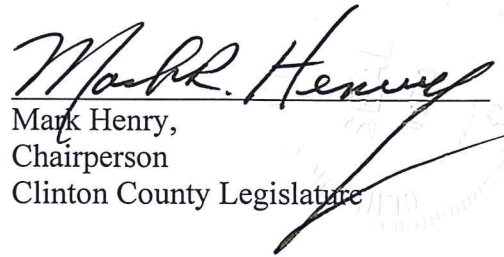 Mark R. Henry
Mark Henry,
Chairperson
Clinton County Legislature